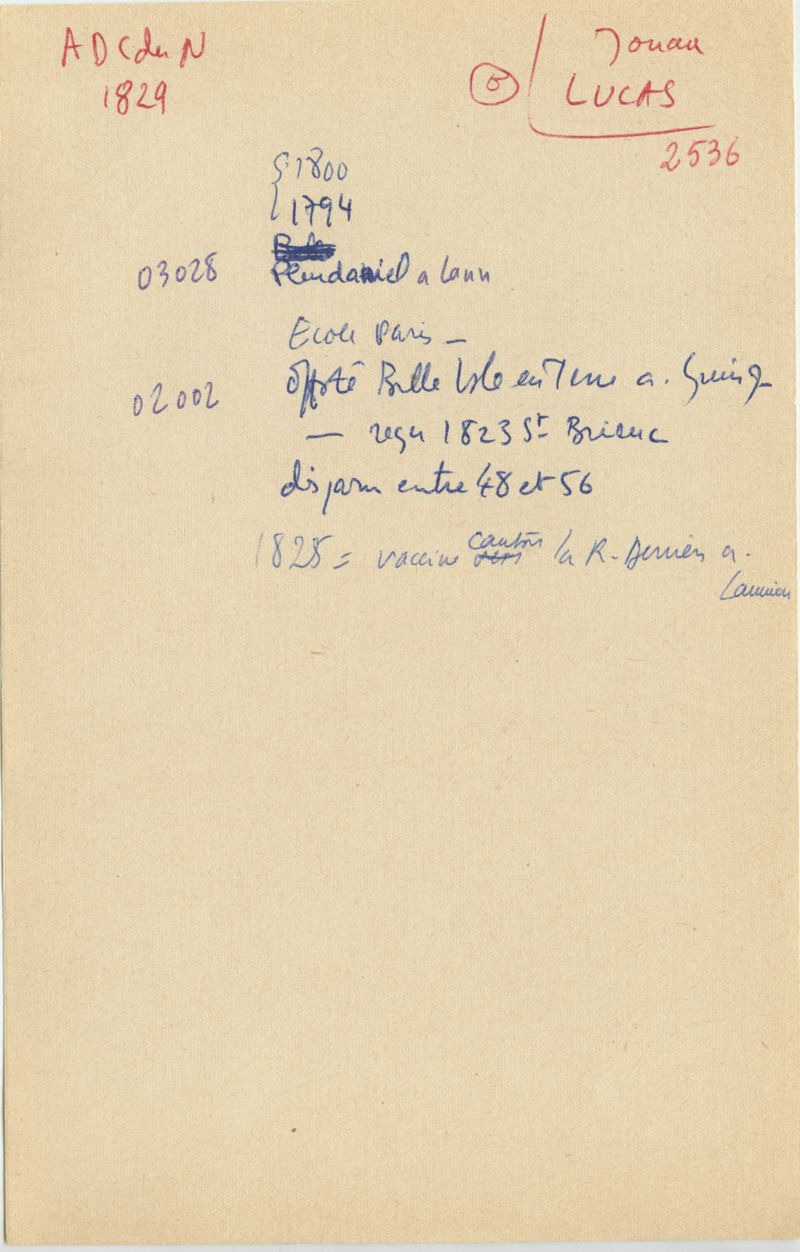 A D C du N
1829
Jouan
LUCAS
2536
1800
1794
03028 Pleudaniel a Lann
Ecole Paris –
02002 Belle Isle en Terre a. Guing
— reçu 1823 St Brieuc
disparu entre 48 et 56
1828 = vaccine canton la R. Derrien a.
Lannion